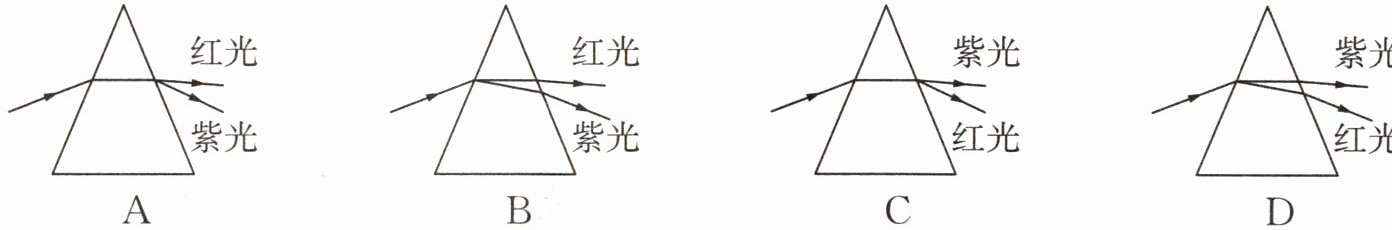 红光
紫光
A
红光
紫光
B
紫光
红光
C
紫光
红光
D